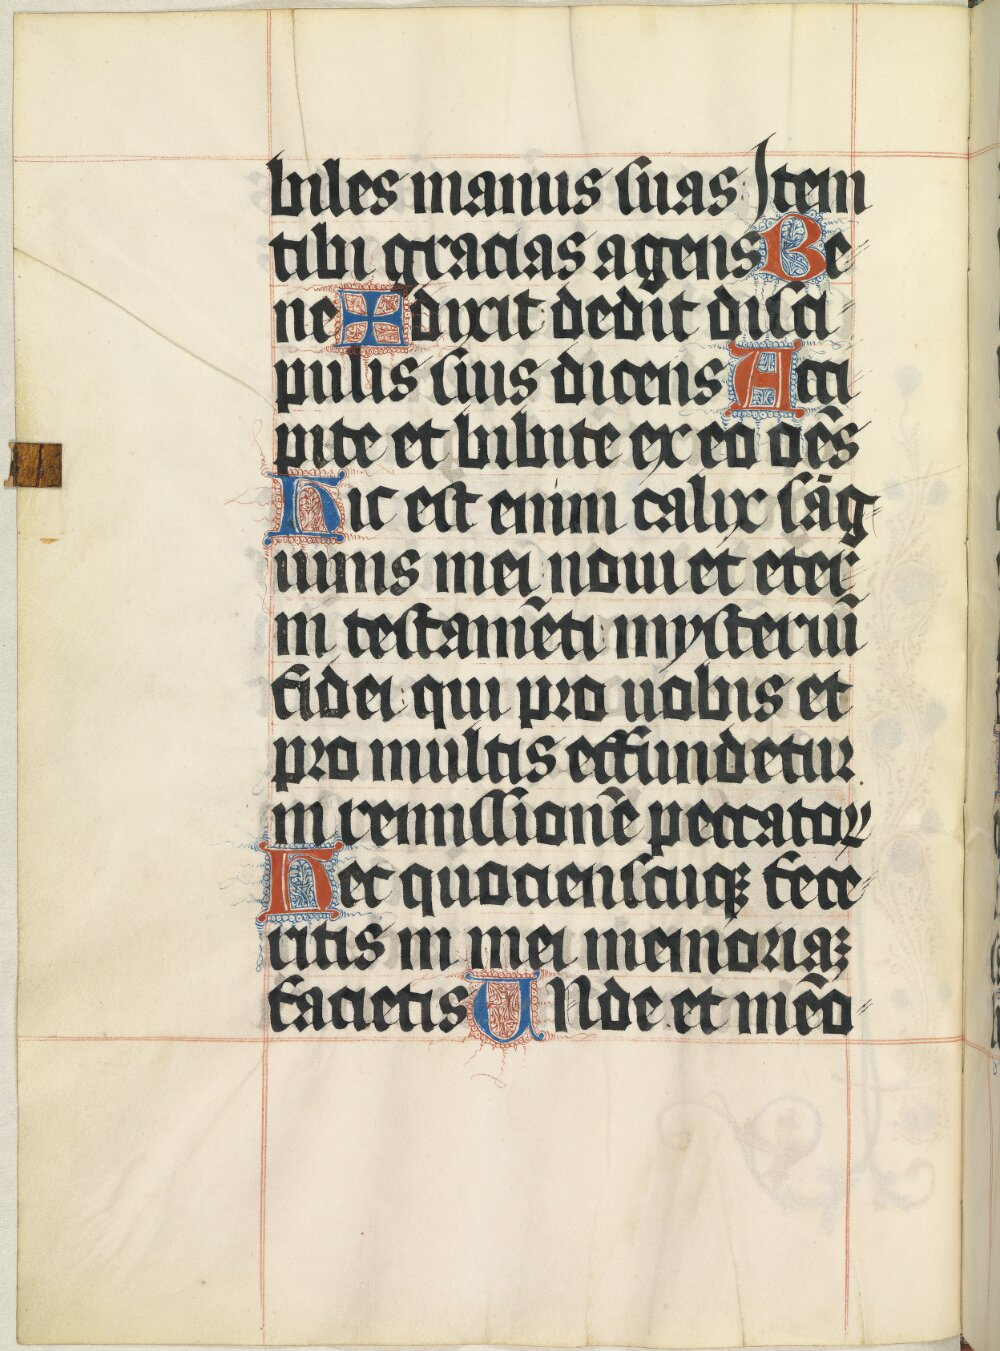 biles manus suas: Item
tibi gracias agens Be
ne ✠ dixit dedit disci
pulis suis dicens Acci
pite et bibite ex eo om̄s
Hic est enim calix sāg
uinis mei noui et eter
ni testamēti mysteriū
fidei: qui pro uobis et
pro multis effundetur.
in remissionē peccatoꝝ
Hec quociensc̄uqꝫ fece
ritis in mei memoriaꝫ
facietis Unde et mēo